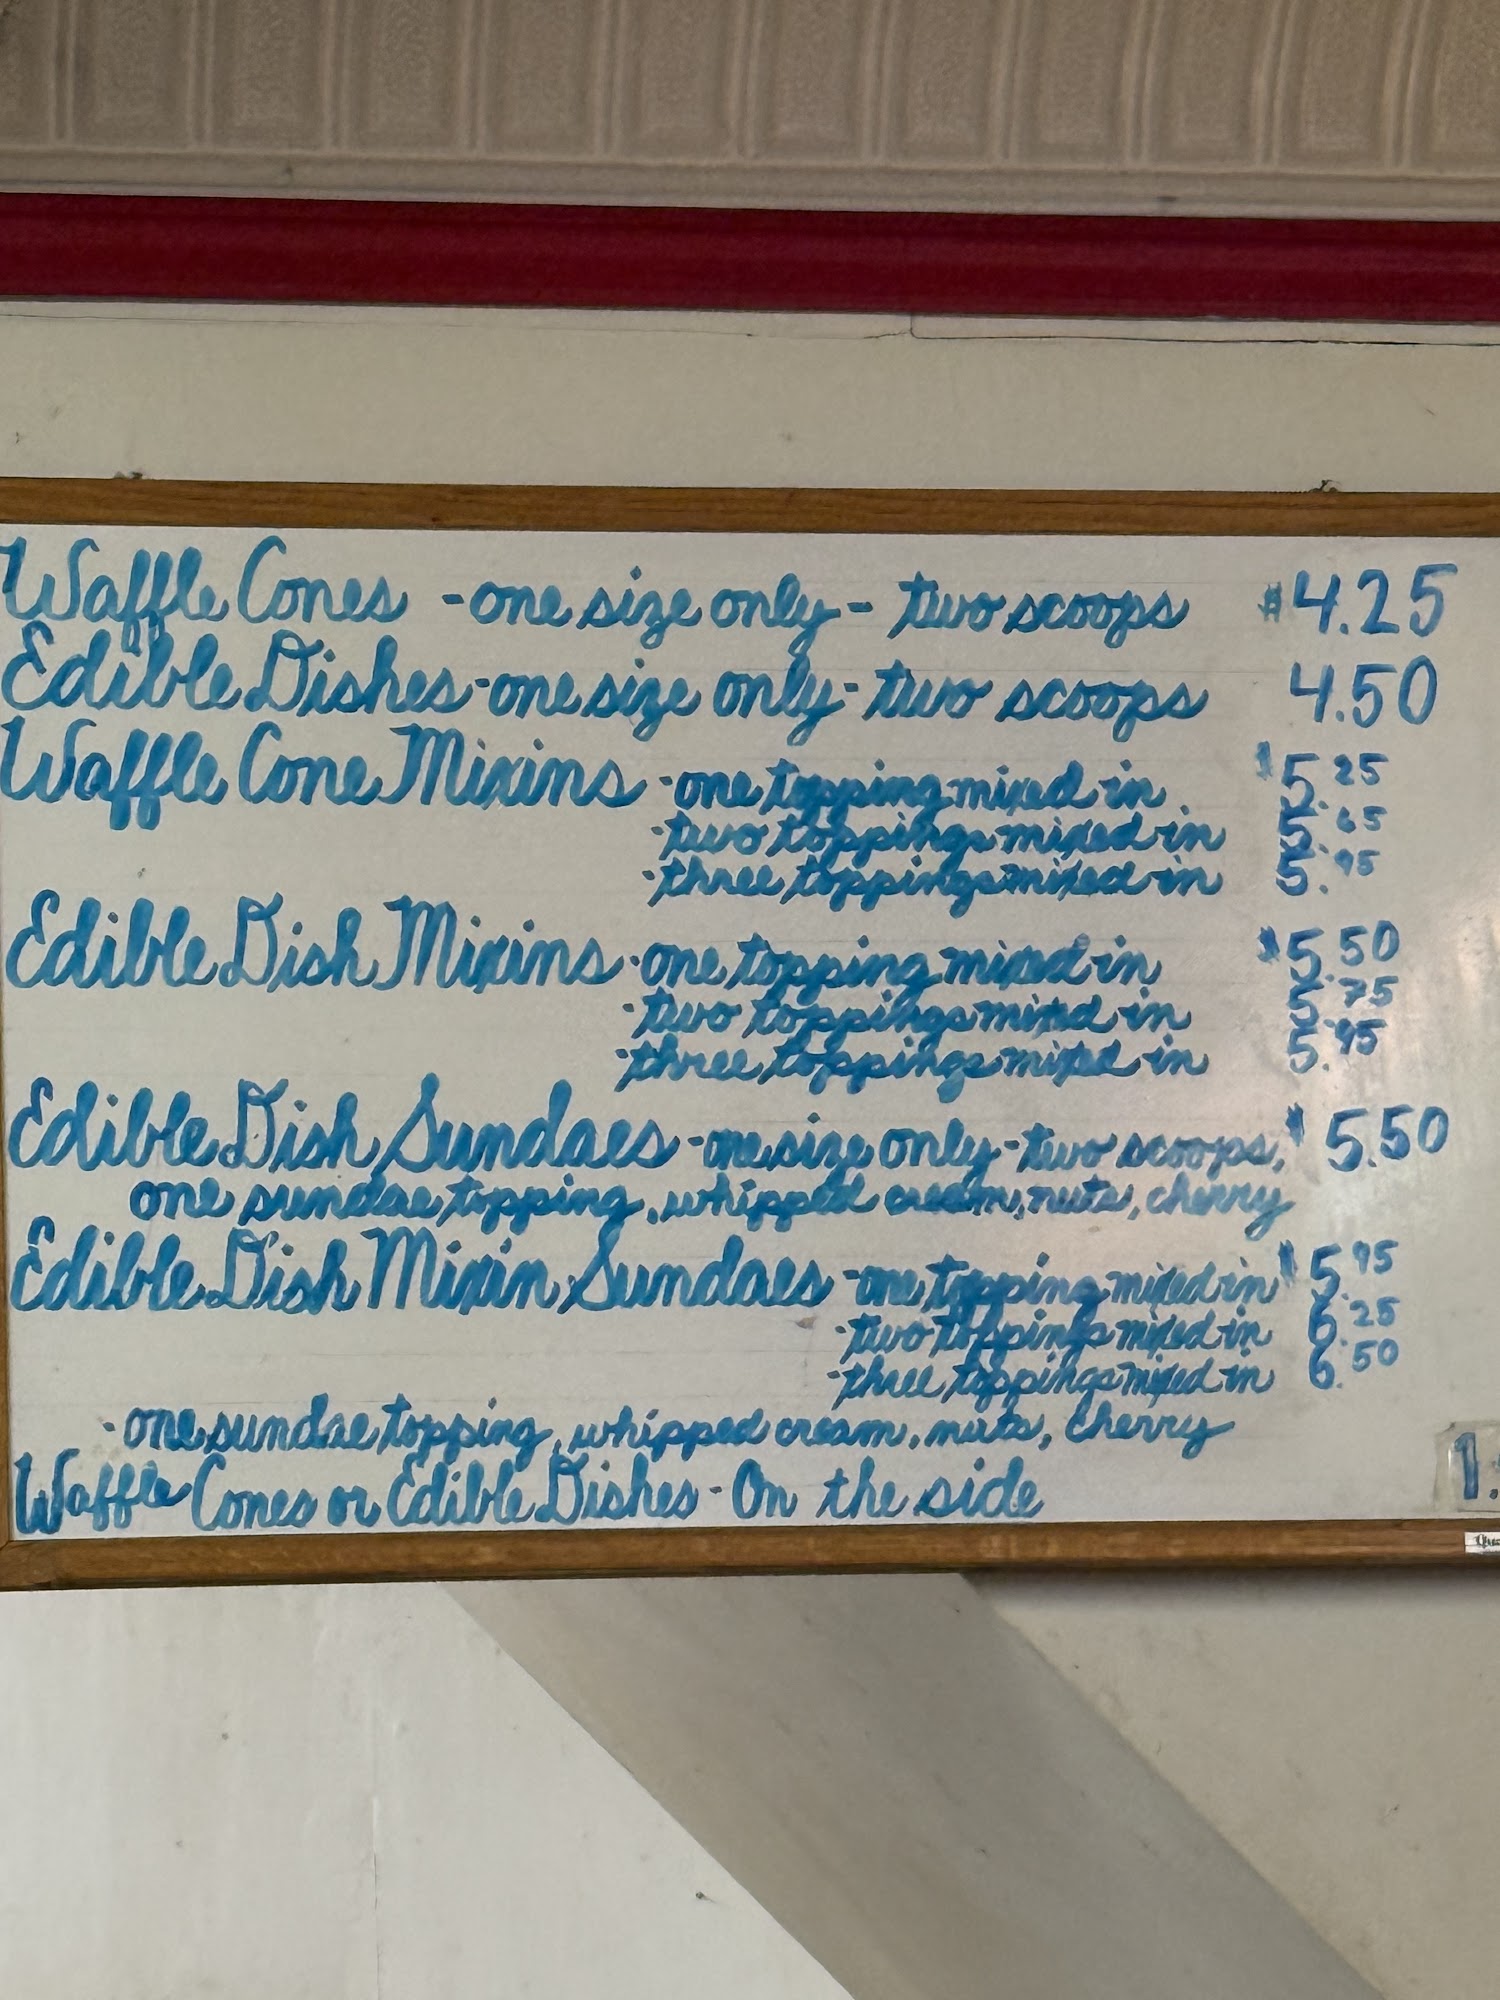 Waffle Cones - one size only - two scoops $4.25
Edible Dishes - one size only - two scoops 4.50
Waffle Cone Mixins - one topping mixed in $5.25
- two toppings mixed in 5.65
- three toppings mixed in 5.95
Edible Dish Mixins - one topping mixed in $5.50
- two toppings mixed in 5.75
- three toppings mixed in 5.95
Edible Dish Sundaes - one size only - two scoops, $5.50
one sundae topping, whipped cream, nuts, cherry
Edible Dish Mixin Sundaes - one topping mixed in $5.95
- two toppings mixed in 6.25
- three toppings mixed in 6.50
- one sundae topping, whipped cream, nuts, cherry
Waffle Cones or Edible Dishes - On the side 1.